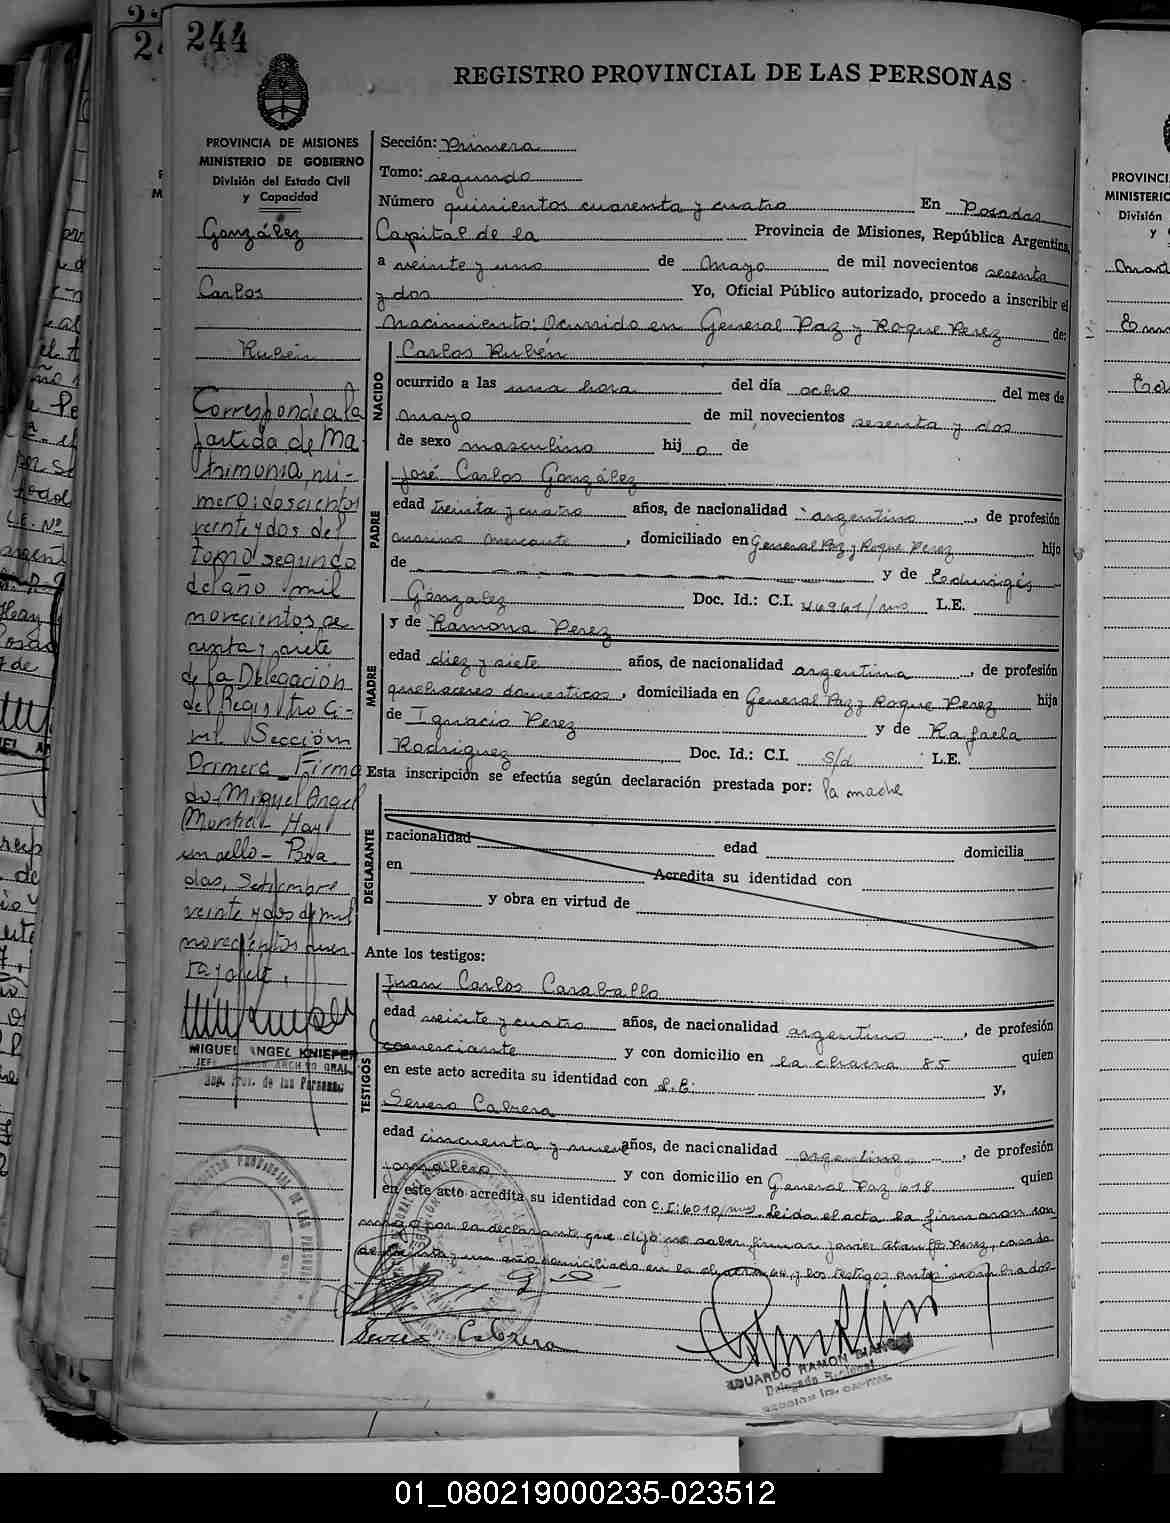 244
REGISTRO PROVINCIAL DE LAS PERSONAS
PROVINCIA DE MISIONES
MINISTERIO DE GOBIERNO
División del Estado Civil
y Capacidad
González
Carlos
Rubén
Corresponde a la
partida de Ma
trimonio, nú-
mero: doscientos
veinte y dos del
tomo segundo
del año mil
novecientos se
senta y siete
de la Delegación
del Registro Ci-
vil Sección
Primera - Firma
do Miguel Angel
Montiel Hay
un sello - Posa
das, Setiembre
veinte y dos de mil
novecientos
MIGUEL ANGEL KNIEPER
Sección: Primera
Tomo: segundo
Número quinientos cuarenta y cuatro En Posadas
Capital de la Provincia de Misiones, República Argentina,
a veinte y uno de Mayo de mil novecientos sesenta
y dos Yo, Oficial Público autorizado, procedo a inscribir el
Nacimiento: Ocurrido en General Paz y Roque Perez de:
NACIDO
Carlos Rubén
ocurrido a las una hora del día ocho del mes de
Mayo de mil novecientos sesenta y dos
de sexo masculino hij o de
PADRE
José Carlos González
edad treinta y cuatro años, de nacionalidad argentino, de profesión
marino mercante, domiciliado en General Paz y Roque Perez hijo
de y de Eduvigés
González Doc. Id.: C.I. L.E.
MADRE
y de Ramona Perez
edad diez y siete años, de nacionalidad argentina, de profesión
quehaceres domesticos, domiciliada en General Paz y Roque Perez hija
de Ignacio Perez y de Rafaela
Rodriguez Doc. Id.: C.I. s/d L.E.
Esta inscripción se efectúa según declaración prestada por: la madre
DECLARANTE
nacionalidad edad domicilia
en Acredita su identidad con
y obra en virtud de
Ante los testigos:
TESTIGOS
Juan Carlos Caraballo
edad veinte y cuatro años, de nacionalidad argentino, de profesión
comerciante y con domicilio en la chacra 85 quien
en este acto acredita su identidad con L.E. y,
Severo Cabrera
edad cincuenta y nueve años, de nacionalidad argentino, de profesión
jornalero y con domicilio en General Paz 618 quien
en este acto acredita su identidad con C.I: 6010/mns. Leida el acta la firmaron con
migo por la declarante que dijo no saber firmar Javier Perez, casado
domiciliado en la chacra y los testigos antes nombrados-
Severo Cabrera
EDUARDO RAMON
01_080219000235-023512